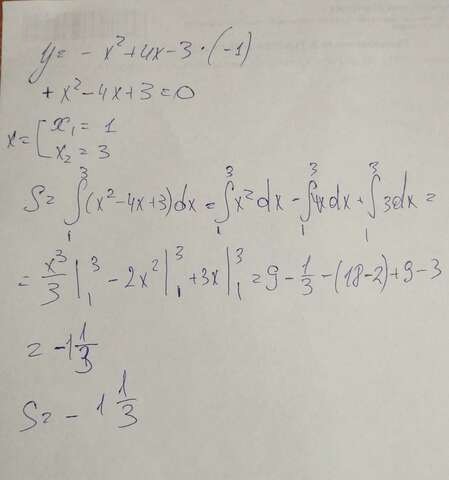 y = - x² + 4x - 3 · (-1)
+ x² - 4x + 3 = 0
x = [ x₁ = 1
x₂ = 3
S = ∫₁³ (x² - 4x + 3) dx = ∫₁³ x² dx - ∫₁³ 4x dx + ∫₁³ 3dx =
= x³/3 |₁³ - 2x² |₁³ + 3x |₁³ = 9 - 1/3 - (18 - 2) + 9 - 3
= -1 1/3
S = - 1 1/3